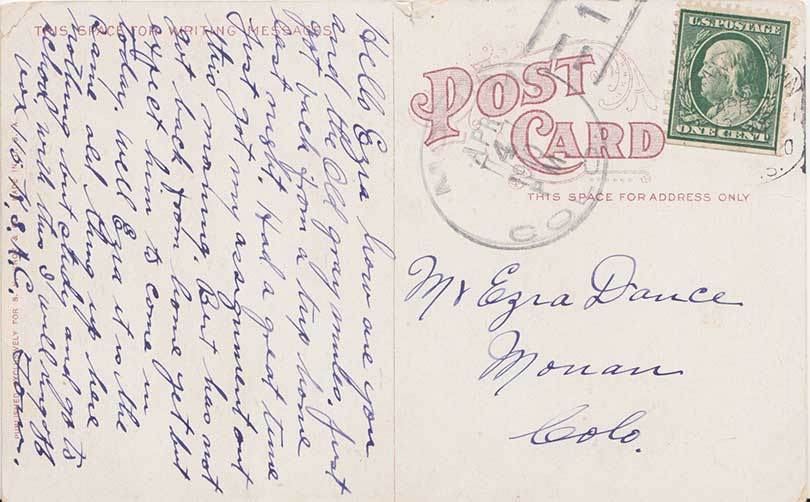 THIS SPACE FOR WRITING MESSAGES
Hello Ezra how are you
and the Old gray mules. Just
got back from a trip home
last night. Had a great time
Just got my assignment out
this morning. But has not
got back from home yet but
expect him to come in
today, well Ezra it is the
same old thing up here
nothing but study and go to
school, well this I will ring off
PUBLISHED EXCLUSIVELY FOR S.
POST
CARD
THIS SPACE FOR ADDRESS ONLY
U.S. POSTAGE
ONE CENT
APR
COLO
Mr Ezra Dance
Monan
Colo.